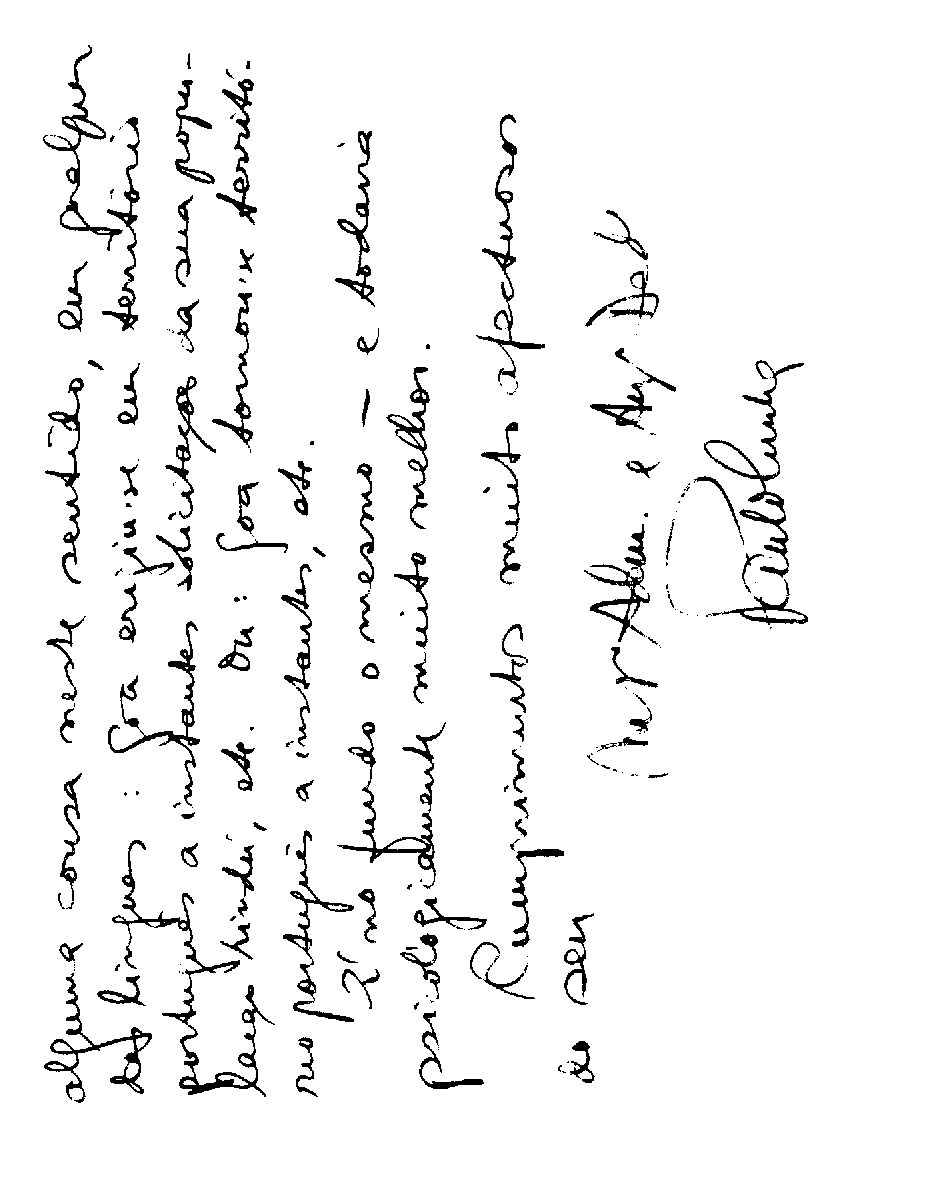 alguma cousa neste sentido, em qualquer
das linguas : Goa erigiu-se em território
português a instantes solicitações da sua popu-
laçao hindú, etc. Ou : Goa tornou-se territó-
rio português a instantes, etc.
É no fundo o mesmo — e todavia
psicológicamente muito melhor.
Cumprimentos muito afectuosos
do seu
e
Paulo Cunha